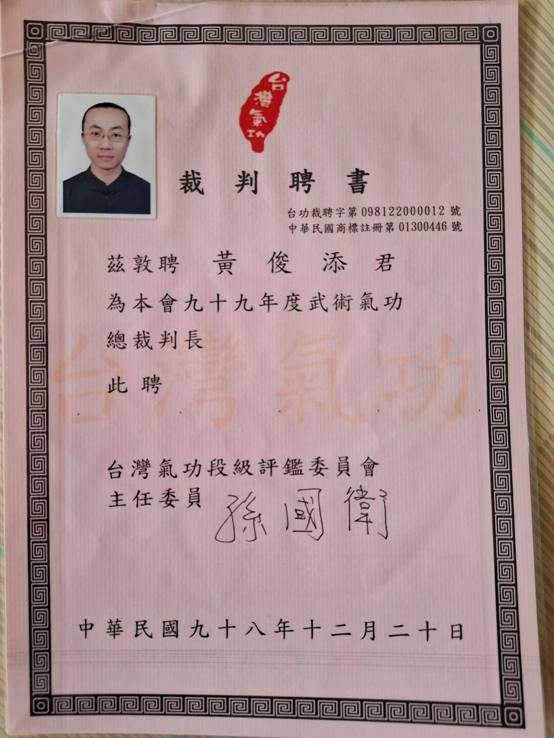 台灣氣功
裁判聘書
台功裁聘字第 098122000012 號
中華民國商標註冊第 01300446 號
茲敦聘 黃俊添 君
為本會九十九年度武術氣功
總裁判長
此聘
台灣氣功
台灣氣功段級評鑑委員會
主任委員 孫國衛
中華民國九十八年十二月二十日